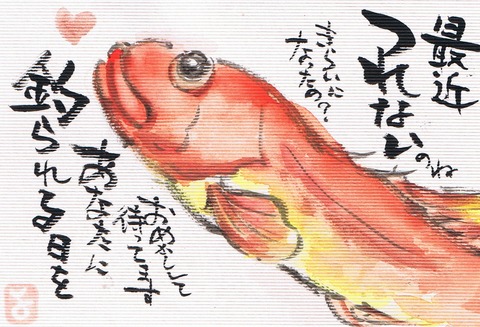 最近
つれないのね
きらいに
なったの?
おめかしして
待ってます
あなたに
釣られる日を